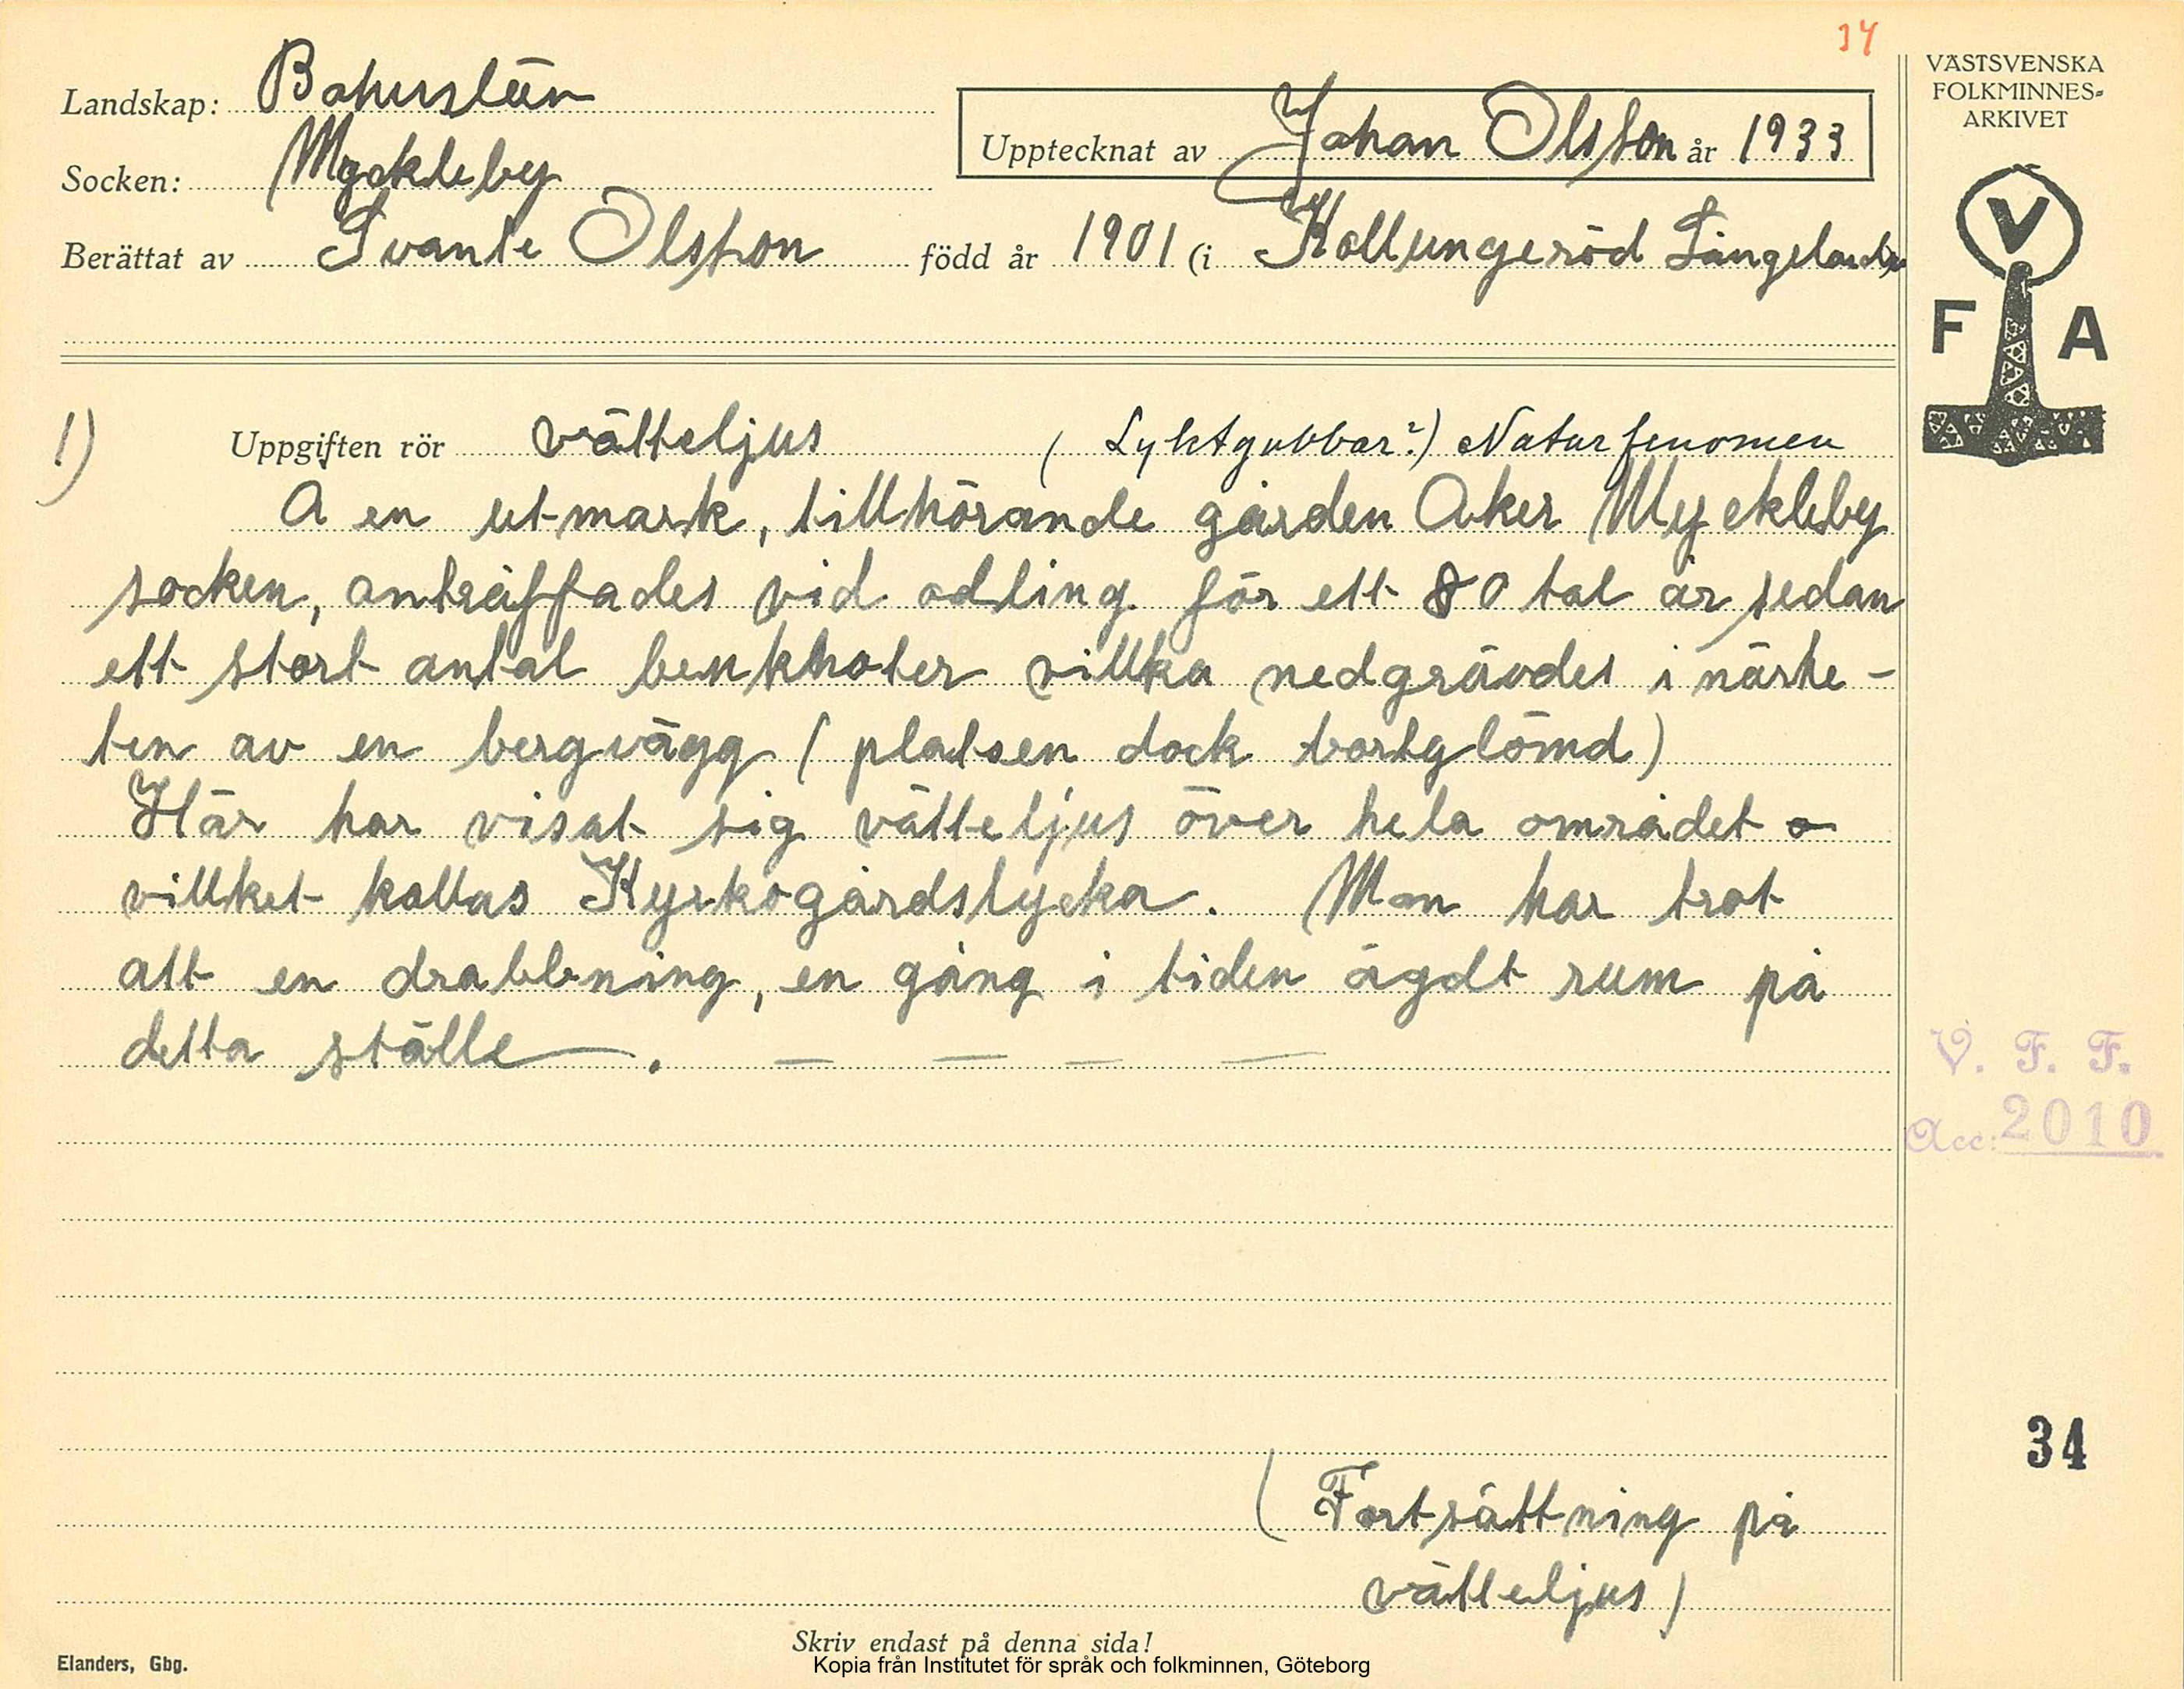 34
Landskap: Bohuslän
Socken: Myckleby
Upptecknat av Johan Olsson år 1933
Berättat av Svante Olsson född år 1901 (i Kollungeröd Långelanda
VÄSTSVENSKA
FOLKMINNES-
ARKIVET
V
F A
1) Uppgiften rör vätteljus (Lyktgubbar?) Naturfenomen
Å en utmark, tillhörande gården Åker Myckleby
socken, anträffades vid odling för ett 80 tal år sedan
ett stort antal benknotor villka nedgrävdes i närhe-
ten av en bergvägg (platsen dock bortglömd)
Här har visat sig vätteljus över hela området
villket kallas Kyrkogårdslycka. Man har trot
att en drabbning, en gång i tiden ägdt rum på
detta ställe.
V. F. F.
Acc: 2010
34
(Fortsättning på
vätteljus)
Skriv endast på denna sida!
Elanders, Gbg.
Kopia från Institutet för språk och folkminnen, Göteborg